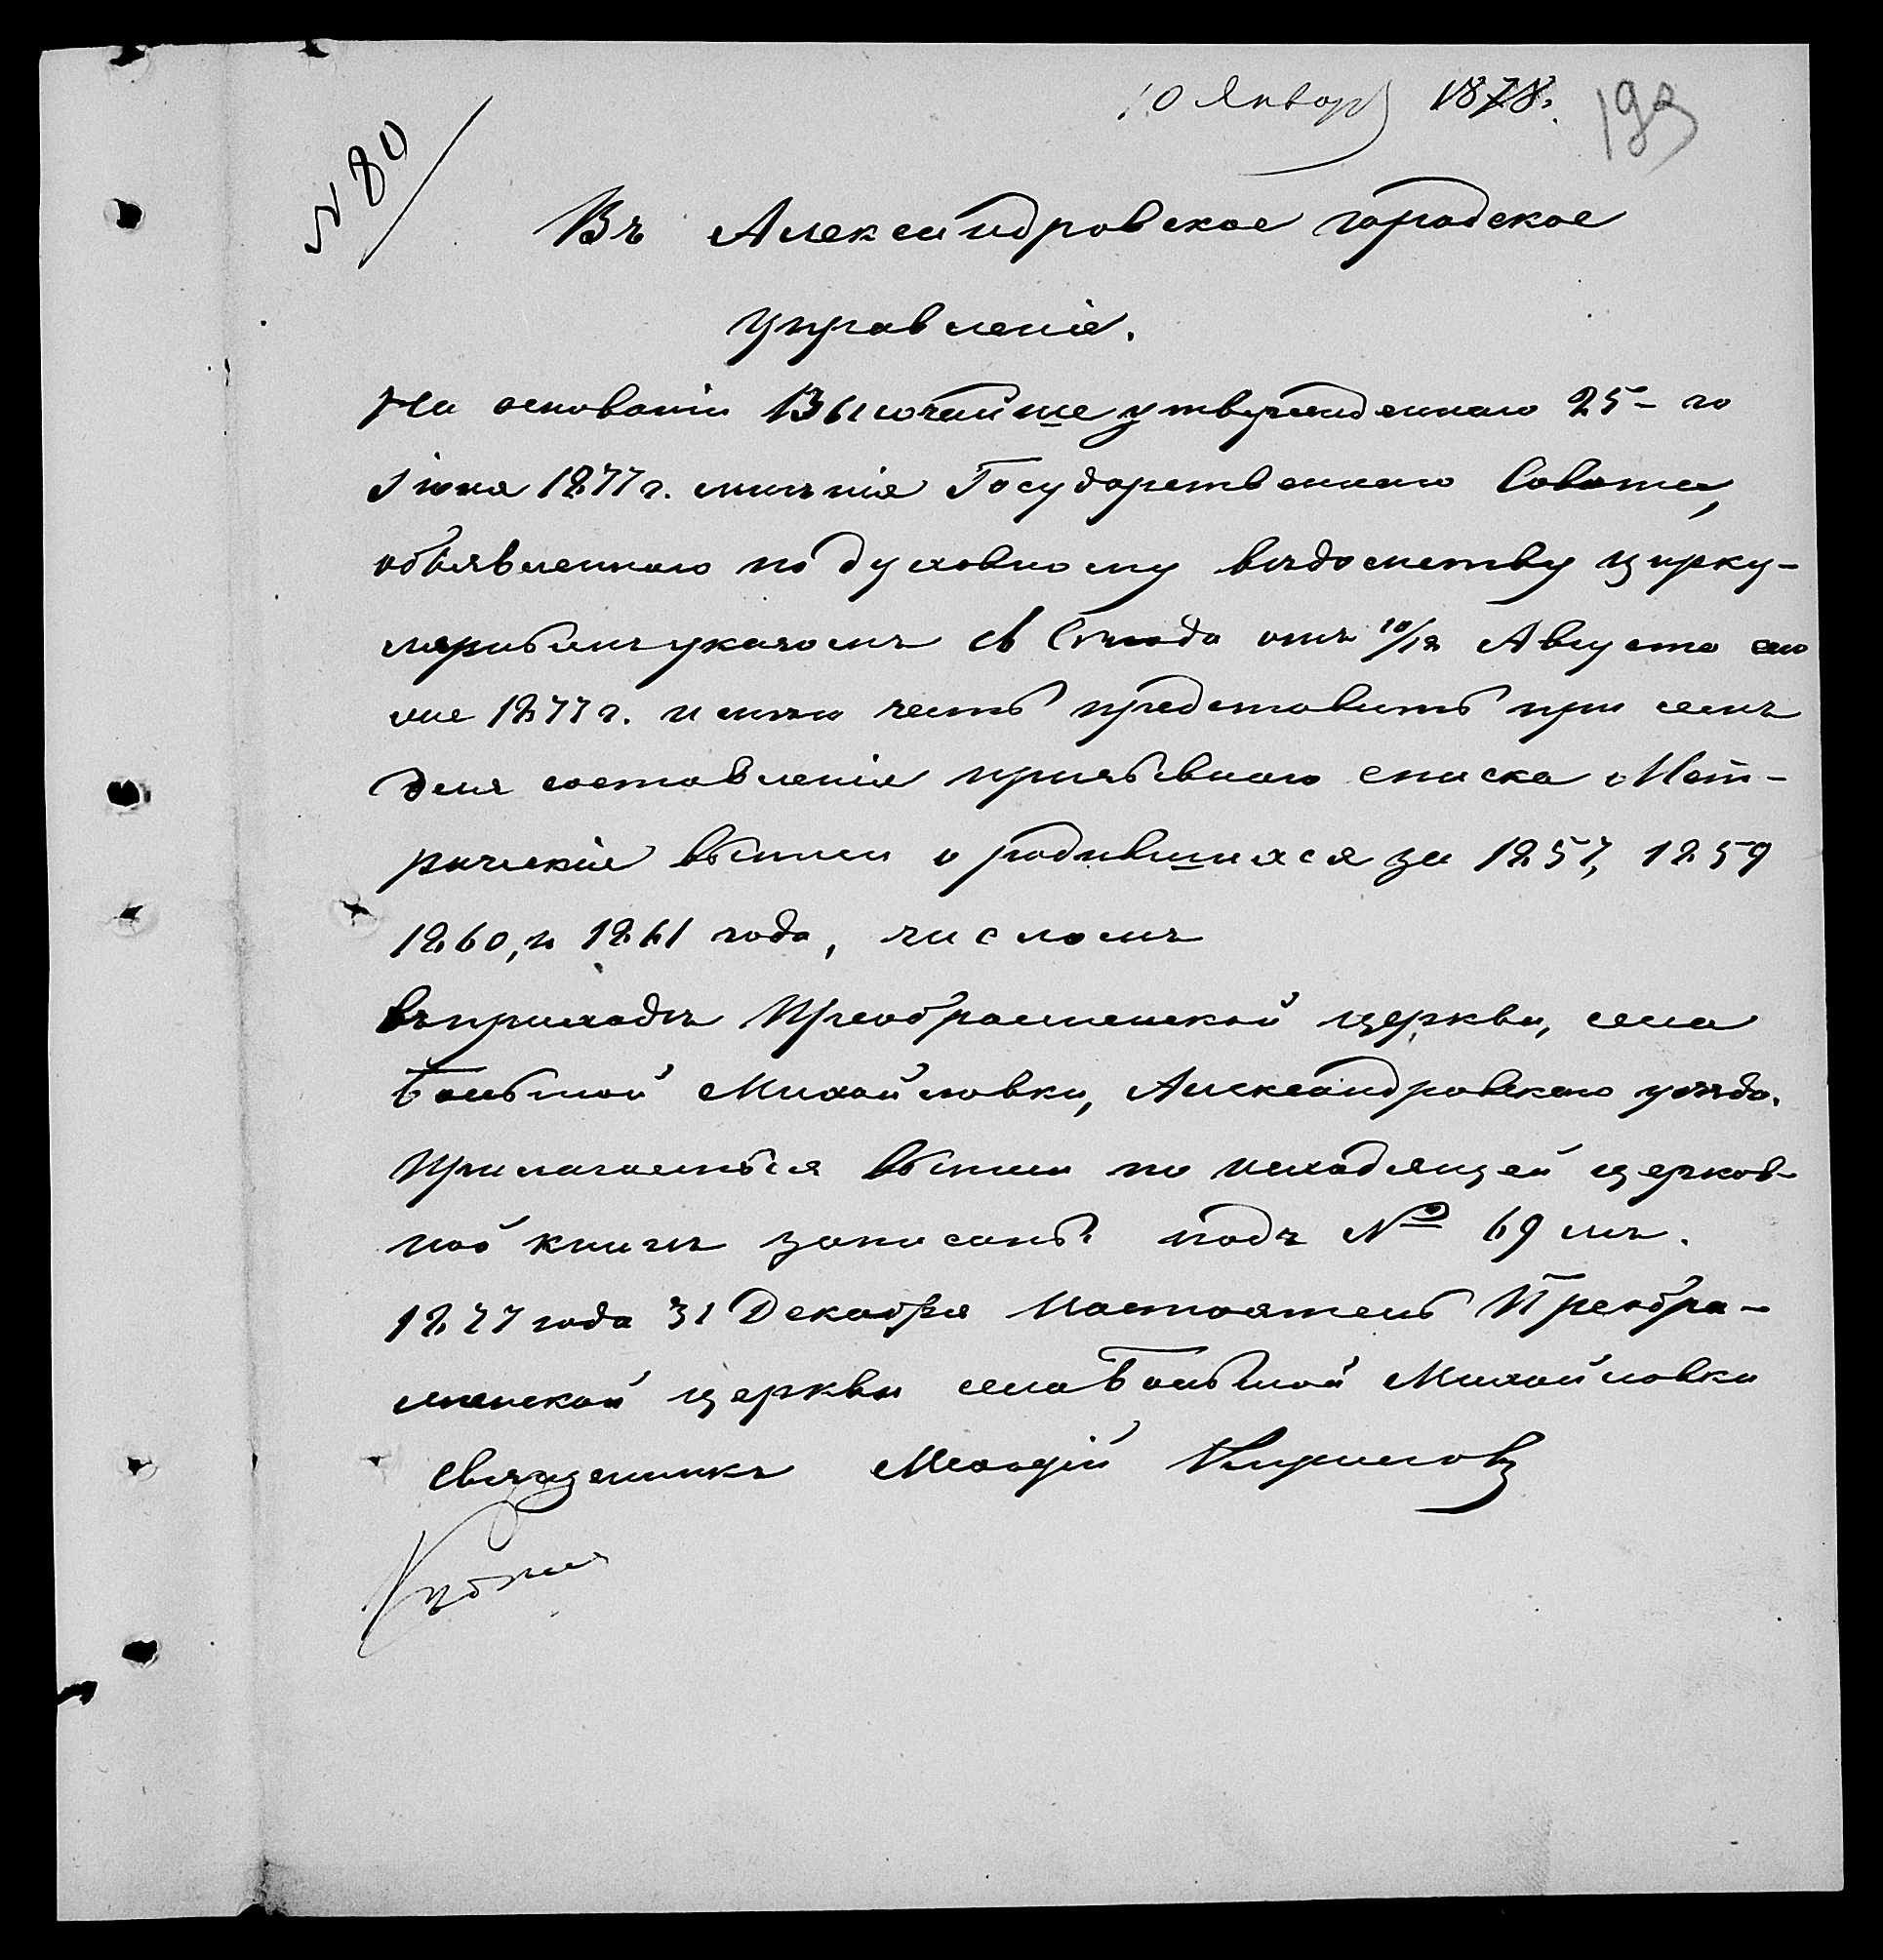 10 Января 1878.
193
№ 80
Въ Александровское городское
управленіе.
На основаніи Высочайше утвержденнаго 25-го
Іюня 1877 г. мнѣнія Государственнаго Совѣта,
объявленнаго по духовному вѣдомству цирку-
лярнымъ указомъ Св Сѵнода отъ 10/12 Августа сего
же 1877 г. имѣю честь представить при семъ
для составленія призывнаго списка Мет-
рическіе выписи о родившихся за 1857, 1859
1860, и 1861 года, числомъ
въ приходѣ Преображенской церкви, села
Большой Михайловки, Александровскаго уѣзда.
Прилагаемыя выписи по исходящей церков-
ной книгѣ записаны подъ № 69 мъ.
1877 года 31 Декабря Настоятель Преобра-
женской церкви села Большой Михайловки
Священникъ Кириловъ